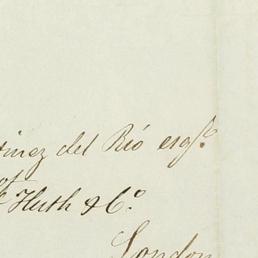 tinez del Río esqre
Huth & Co.
London